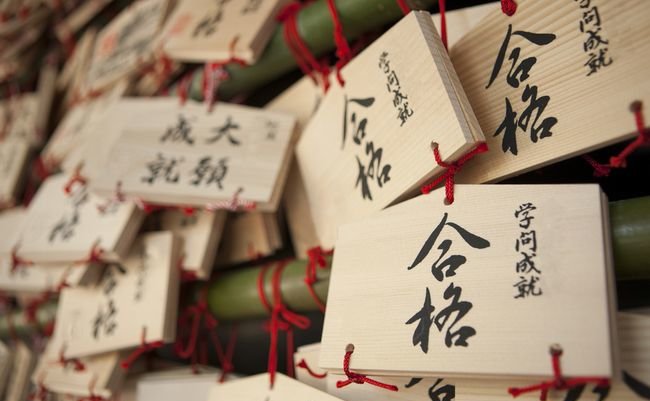 学問成就
合格
学問成就
合格
大願
成就
学問成就
合格
格
格